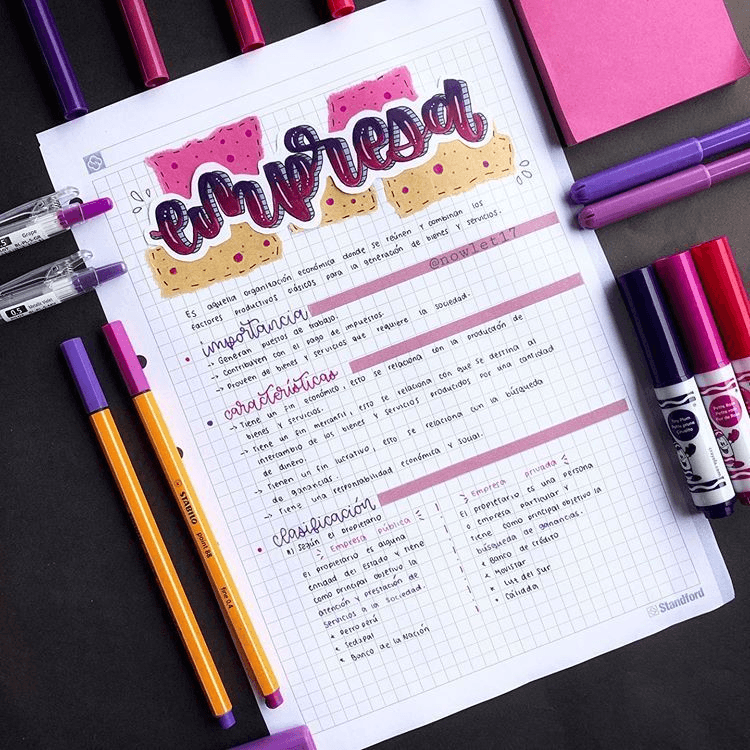 empresa
Es aquella organización económica donde se reúnen y combinan los
factores productivos clásicos para la generación de bienes y servicios.
@nowlet17
importancia
→ Generan puestos de trabajo.
→ Contribuyen con el pago de impuestos.
→ Proveen de bienes y servicios que requiere la sociedad.
características
→ Tiene un fin económico, esto se relaciona con la producción de
bienes y servicios.
→ Tiene un fin mercantil, esto se relaciona con que se destina al
intercambio de los bienes y servicios producidos por una cantidad
de dinero.
→ Tienen un fin lucrativo, esto se relaciona con la búsqueda
de ganancias.
→ Tiene una responsabilidad económica y social.
clasificación
A) Según el propietario
Empresa pública
El propietario es alguna
entidad del estado y tiene
como principal objetivo la
atención y prestación de
servicios a la sociedad.
* Petro perú
* Sedapal
* Banco de la Nación
Empresa privada
El propietario es una persona
o empresa particular y
tiene como principal objetivo la
búsqueda de ganancias.
* Banco de crédito
* Movistar
* Luz del sur
* Calidda
Standford
0.5
Grape
0.5
Metallic Violet
STABILO
point 88
fine 0,4